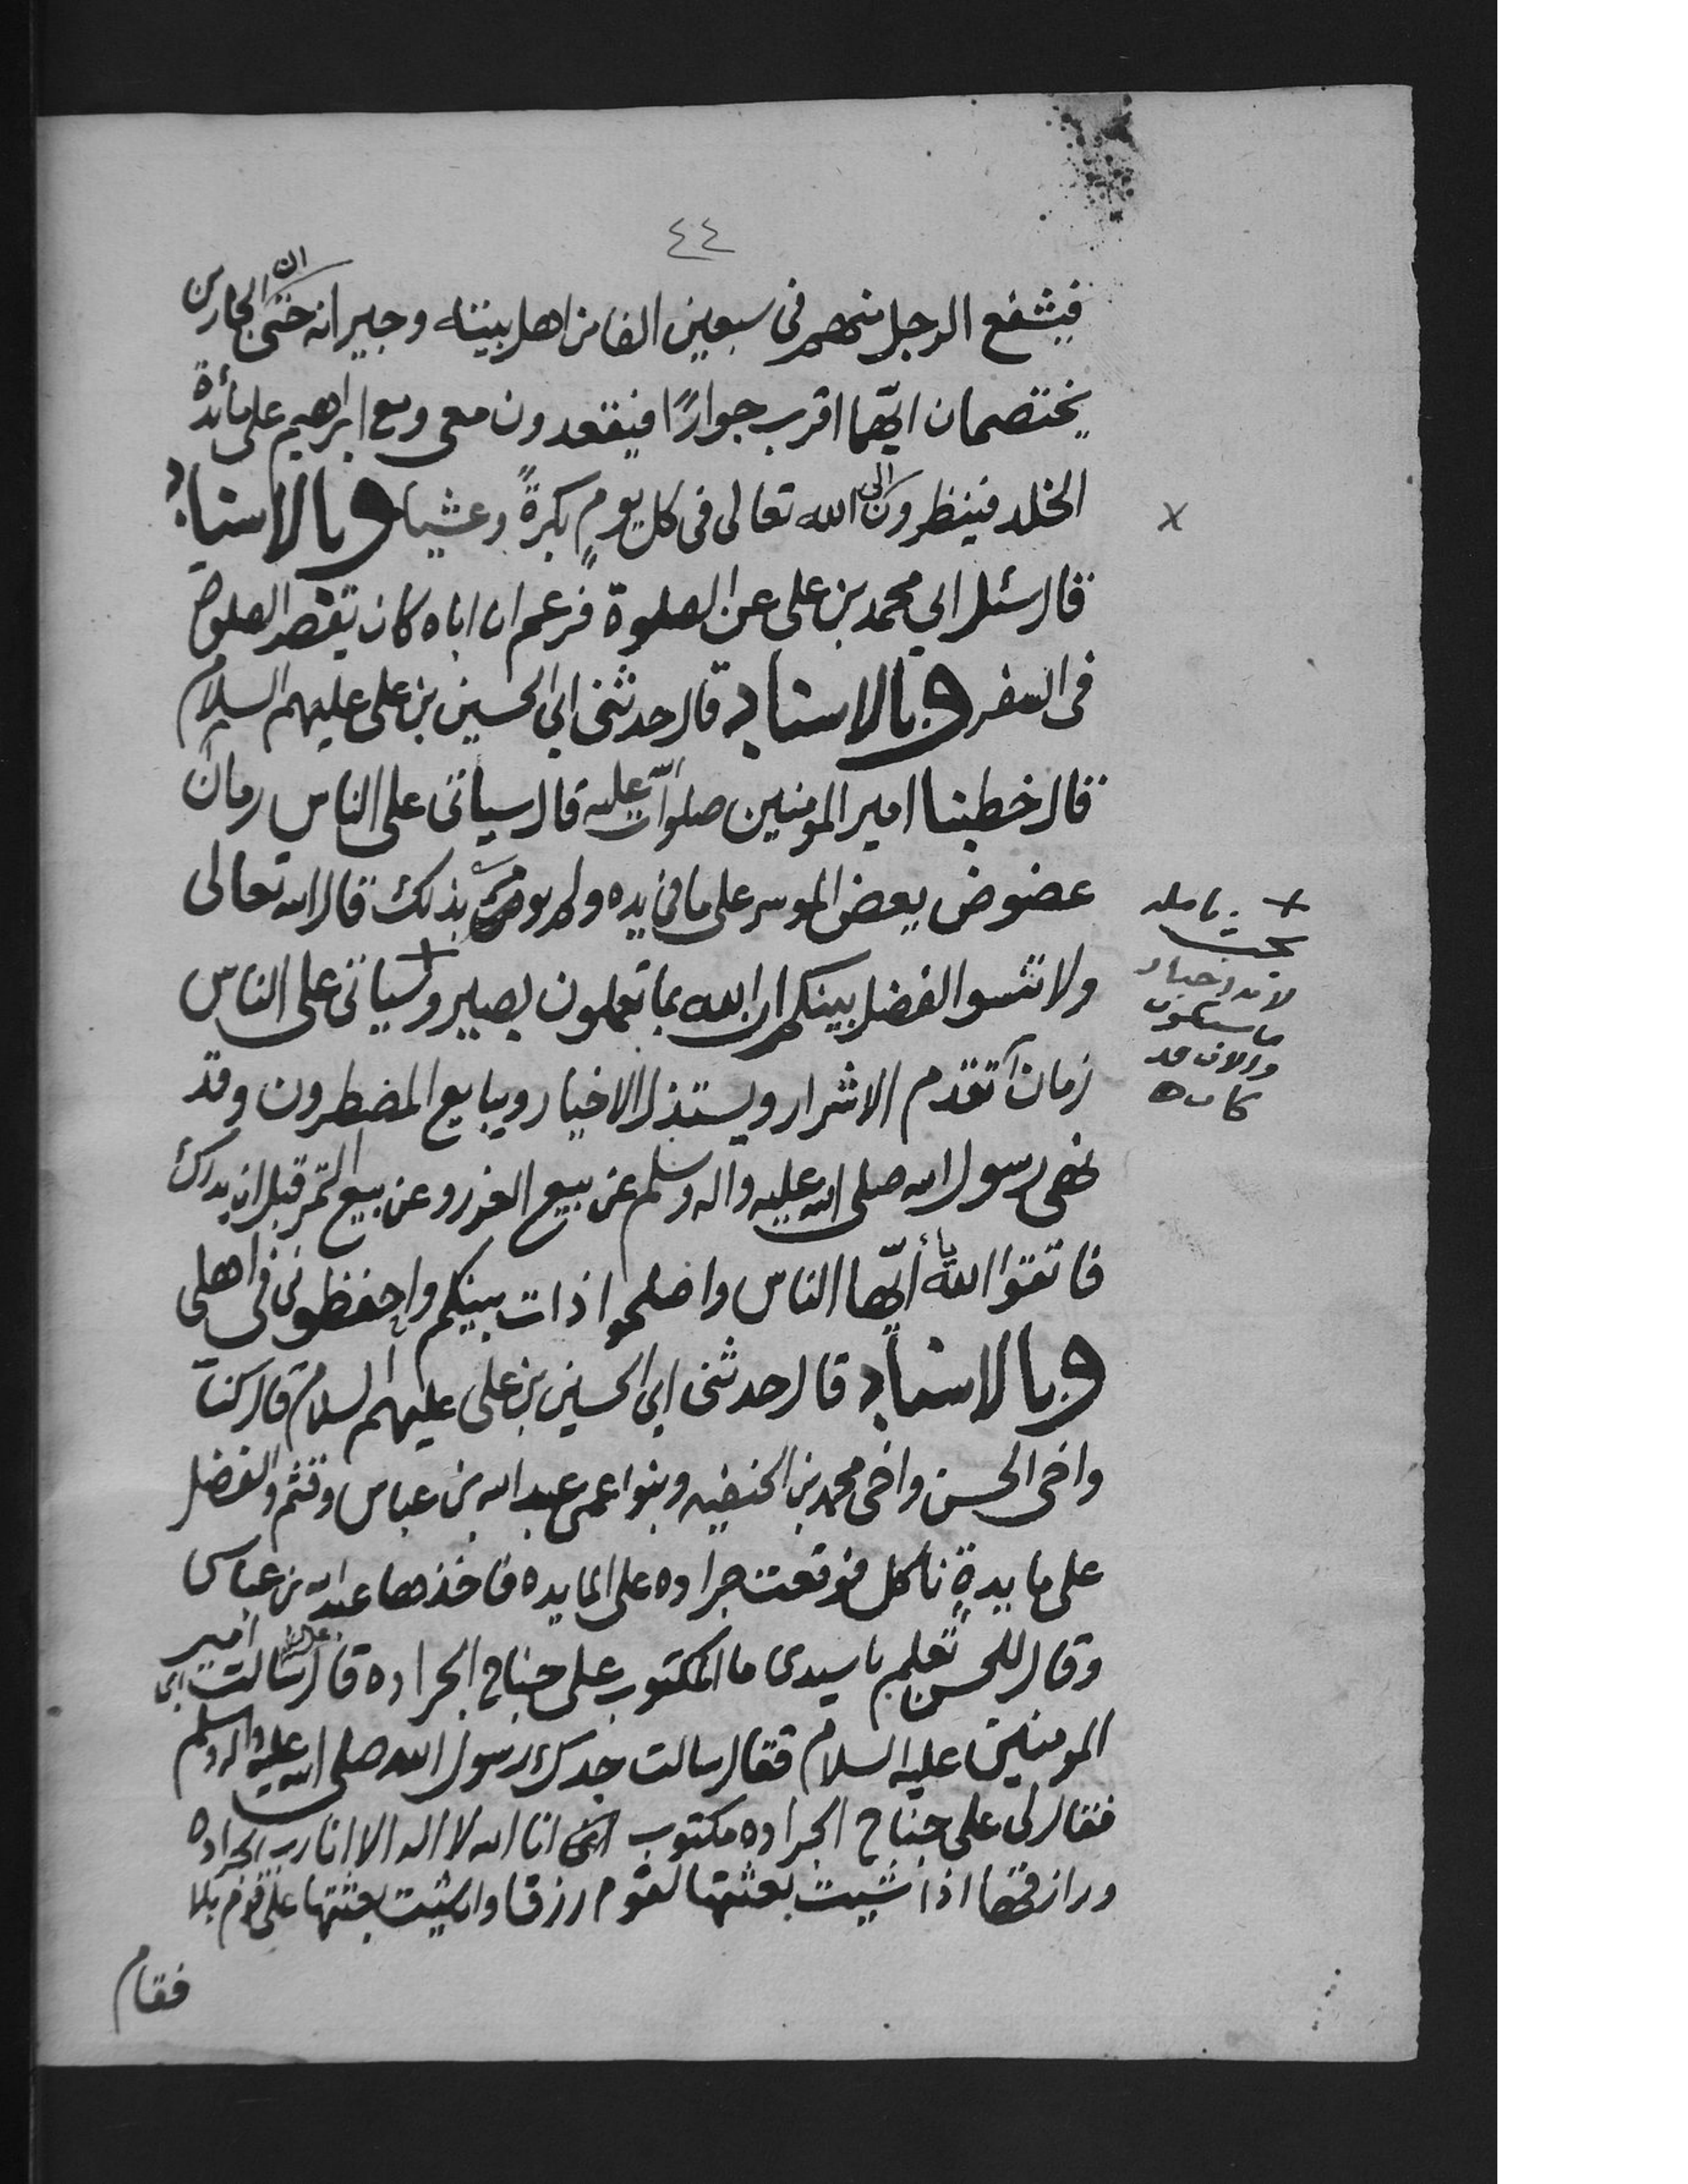 ٤٤
فيشفع الرجل منهم فى سبعين الفا من اهل بيته وجيرانه حتى ان الجارين
يختصمان ايّهما اقرب جوارًا فيقعدون معى ومع ابراهيم على مائدة
الخلد فينظرون الى الله تعالى فى كل يومٍ بكرةً وعشيا وبالاسناد
قال سئل ابي محمد بن على عن الصلوة فزعم ان اباه كان يقصر الصلوة
فى السفر وبالاسناد قال حدثنى ابي الحسين بن على عليهم السلام
قال خطبنا امير المومنين صلوات الله عليه قال سياتى على الناس زمان
عضوض يعض الموسر على ما فى يده ولم يومر بذلك قال الله تعالى
ولا تنسوا الفضل بينكم ان الله بما تعملون بصير وسياتى على الناس
زمان تقدم الاشرار ويستذل الاخيار ويبايع المضطرون وقد
نهى رسول الله صلى الله عليه واله وسلم عن بيع الغرر وعن بيع الثمر قبل ان يدرك
فاتقوا الله يا أيّها الناس واصلحوا ذات بينكم واحفظونى فى اهلى
وبالاسناد قال حدثنى ابي الحسين بن على عليهم السلام قال كنا
واخى الحسن واخى محمد بن الحنفيه وبنوا عمى عبد الله بن عباس وقثم والفضل
على مايدةٍ ناكل فوقعت جراده على المايده فاخذها عبد الله بن عباس
وقال للحسن تعلم يا سيدى ما المكتوب على جناح الجراده قال سالت ابى امير
المومنين عليه السلام فقال سالت جدك رسول الله صلى الله عليه واله وسلم
فقال لى على جناح الجراده مكتوب انى انا الله لا اله الا انا رب الجراده
ورازقها اذا شيت بعثتها لقوم رزقا وان شيت بعثتها على قوم بلا
فقام